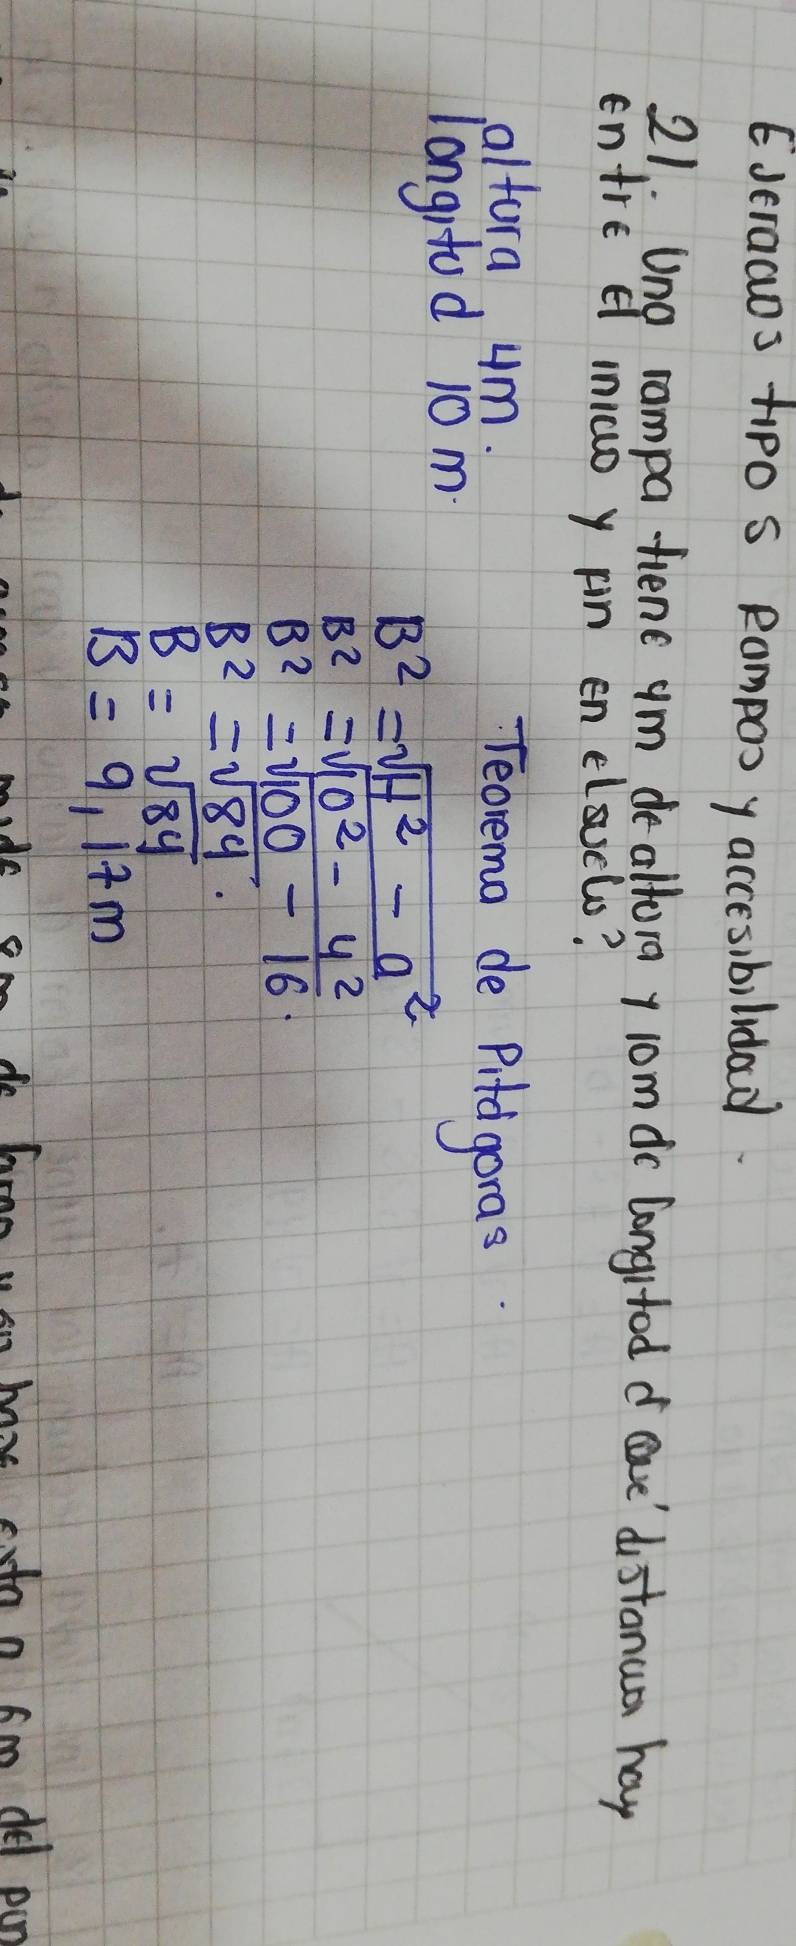 Ejercicios tipo s Rampas y accesibilidad.
21. Una rampa tiene 4m de altura y 10m de longitod ¿ Qué distancia hay
entre el inicio y fin en el suelo?
altura 4m.
longitud 10 m.
Teorema de Pitágoras.
B² = √H² - a²
B² = √10² - 4²
B² = √100 - 16.
B² = √84.
B = √84
B = 9,17m
mide 8m de largo y en base esta a 6m del pun